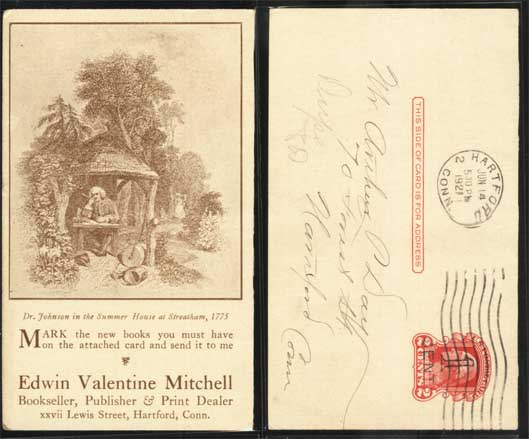 Dr. Johnson in the Summer House at Streatham, 1775
MARK the new books you must have
on the attached card and send it to me
Edwin Valentine Mitchell
Bookseller, Publisher & Print Dealer
xxvii Lewis Street, Hartford, Conn.
THIS SIDE OF CARD IS FOR ADDRESS
Mr
Day
Hartford
Conn
HARTFORD
JUN 14
5 30 PM
1921
2 CONN.
1
CENT
2 CENTS 2